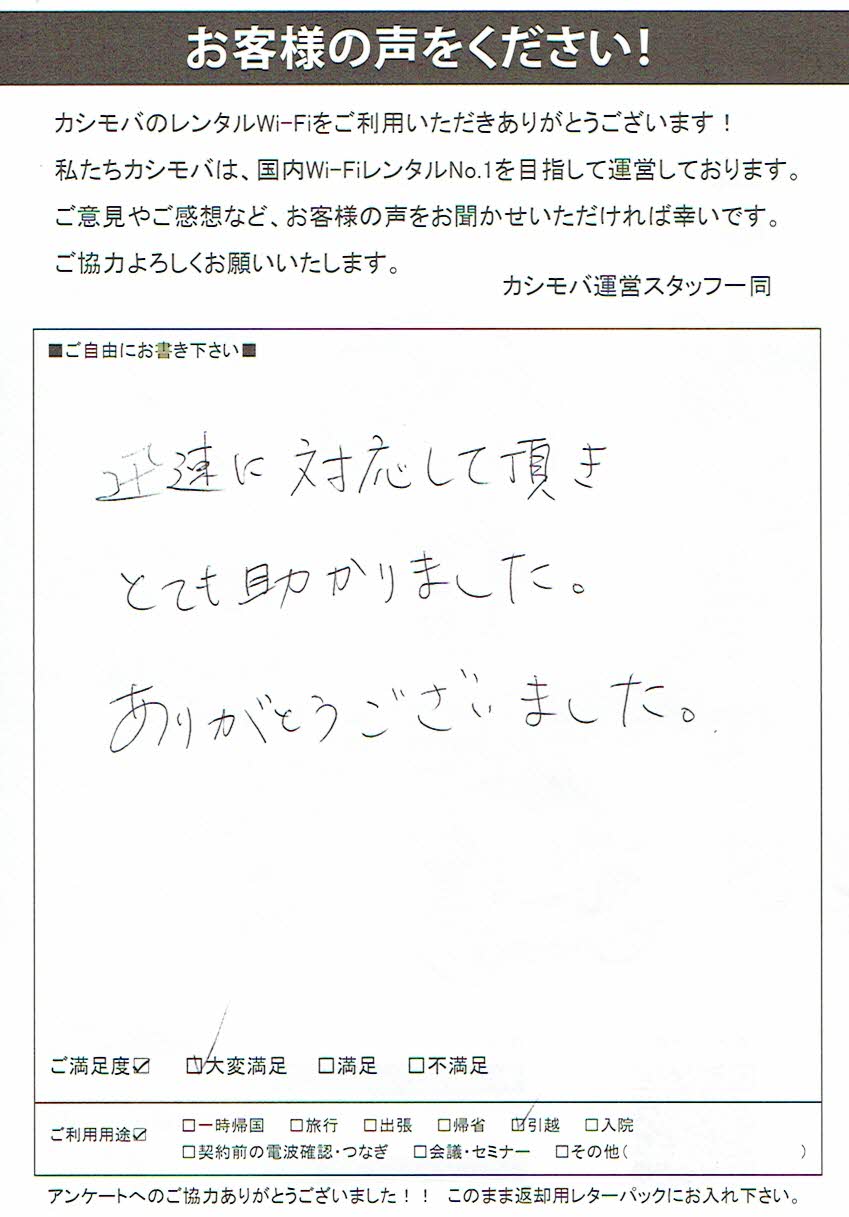 お客様の声をください!
カシモバのレンタルWi-Fiをご利用いただきありがとうございます！
私たちカシモバは、国内Wi-FiレンタルNo.1を目指して運営しております。
ご意見やご感想など、お客様の声をお聞かせいただければ幸いです。
ご協力よろしくお願いいたします。
カシモバ運営スタッフ一同
■ご自由にお書き下さい■
迅速に対応して頂き
とても助かりました。
ありがとうございました。
ご満足度☑ ☑大変満足 □満足 □不満足
ご利用用途☑ □一時帰国 □旅行 □出張 □帰省 ☑引越 □入院
□契約前の電波確認・つなぎ □会議・セミナー □その他( )
アンケートへのご協力ありがとうございました！！ このまま返却用レターパックにお入れ下さい。